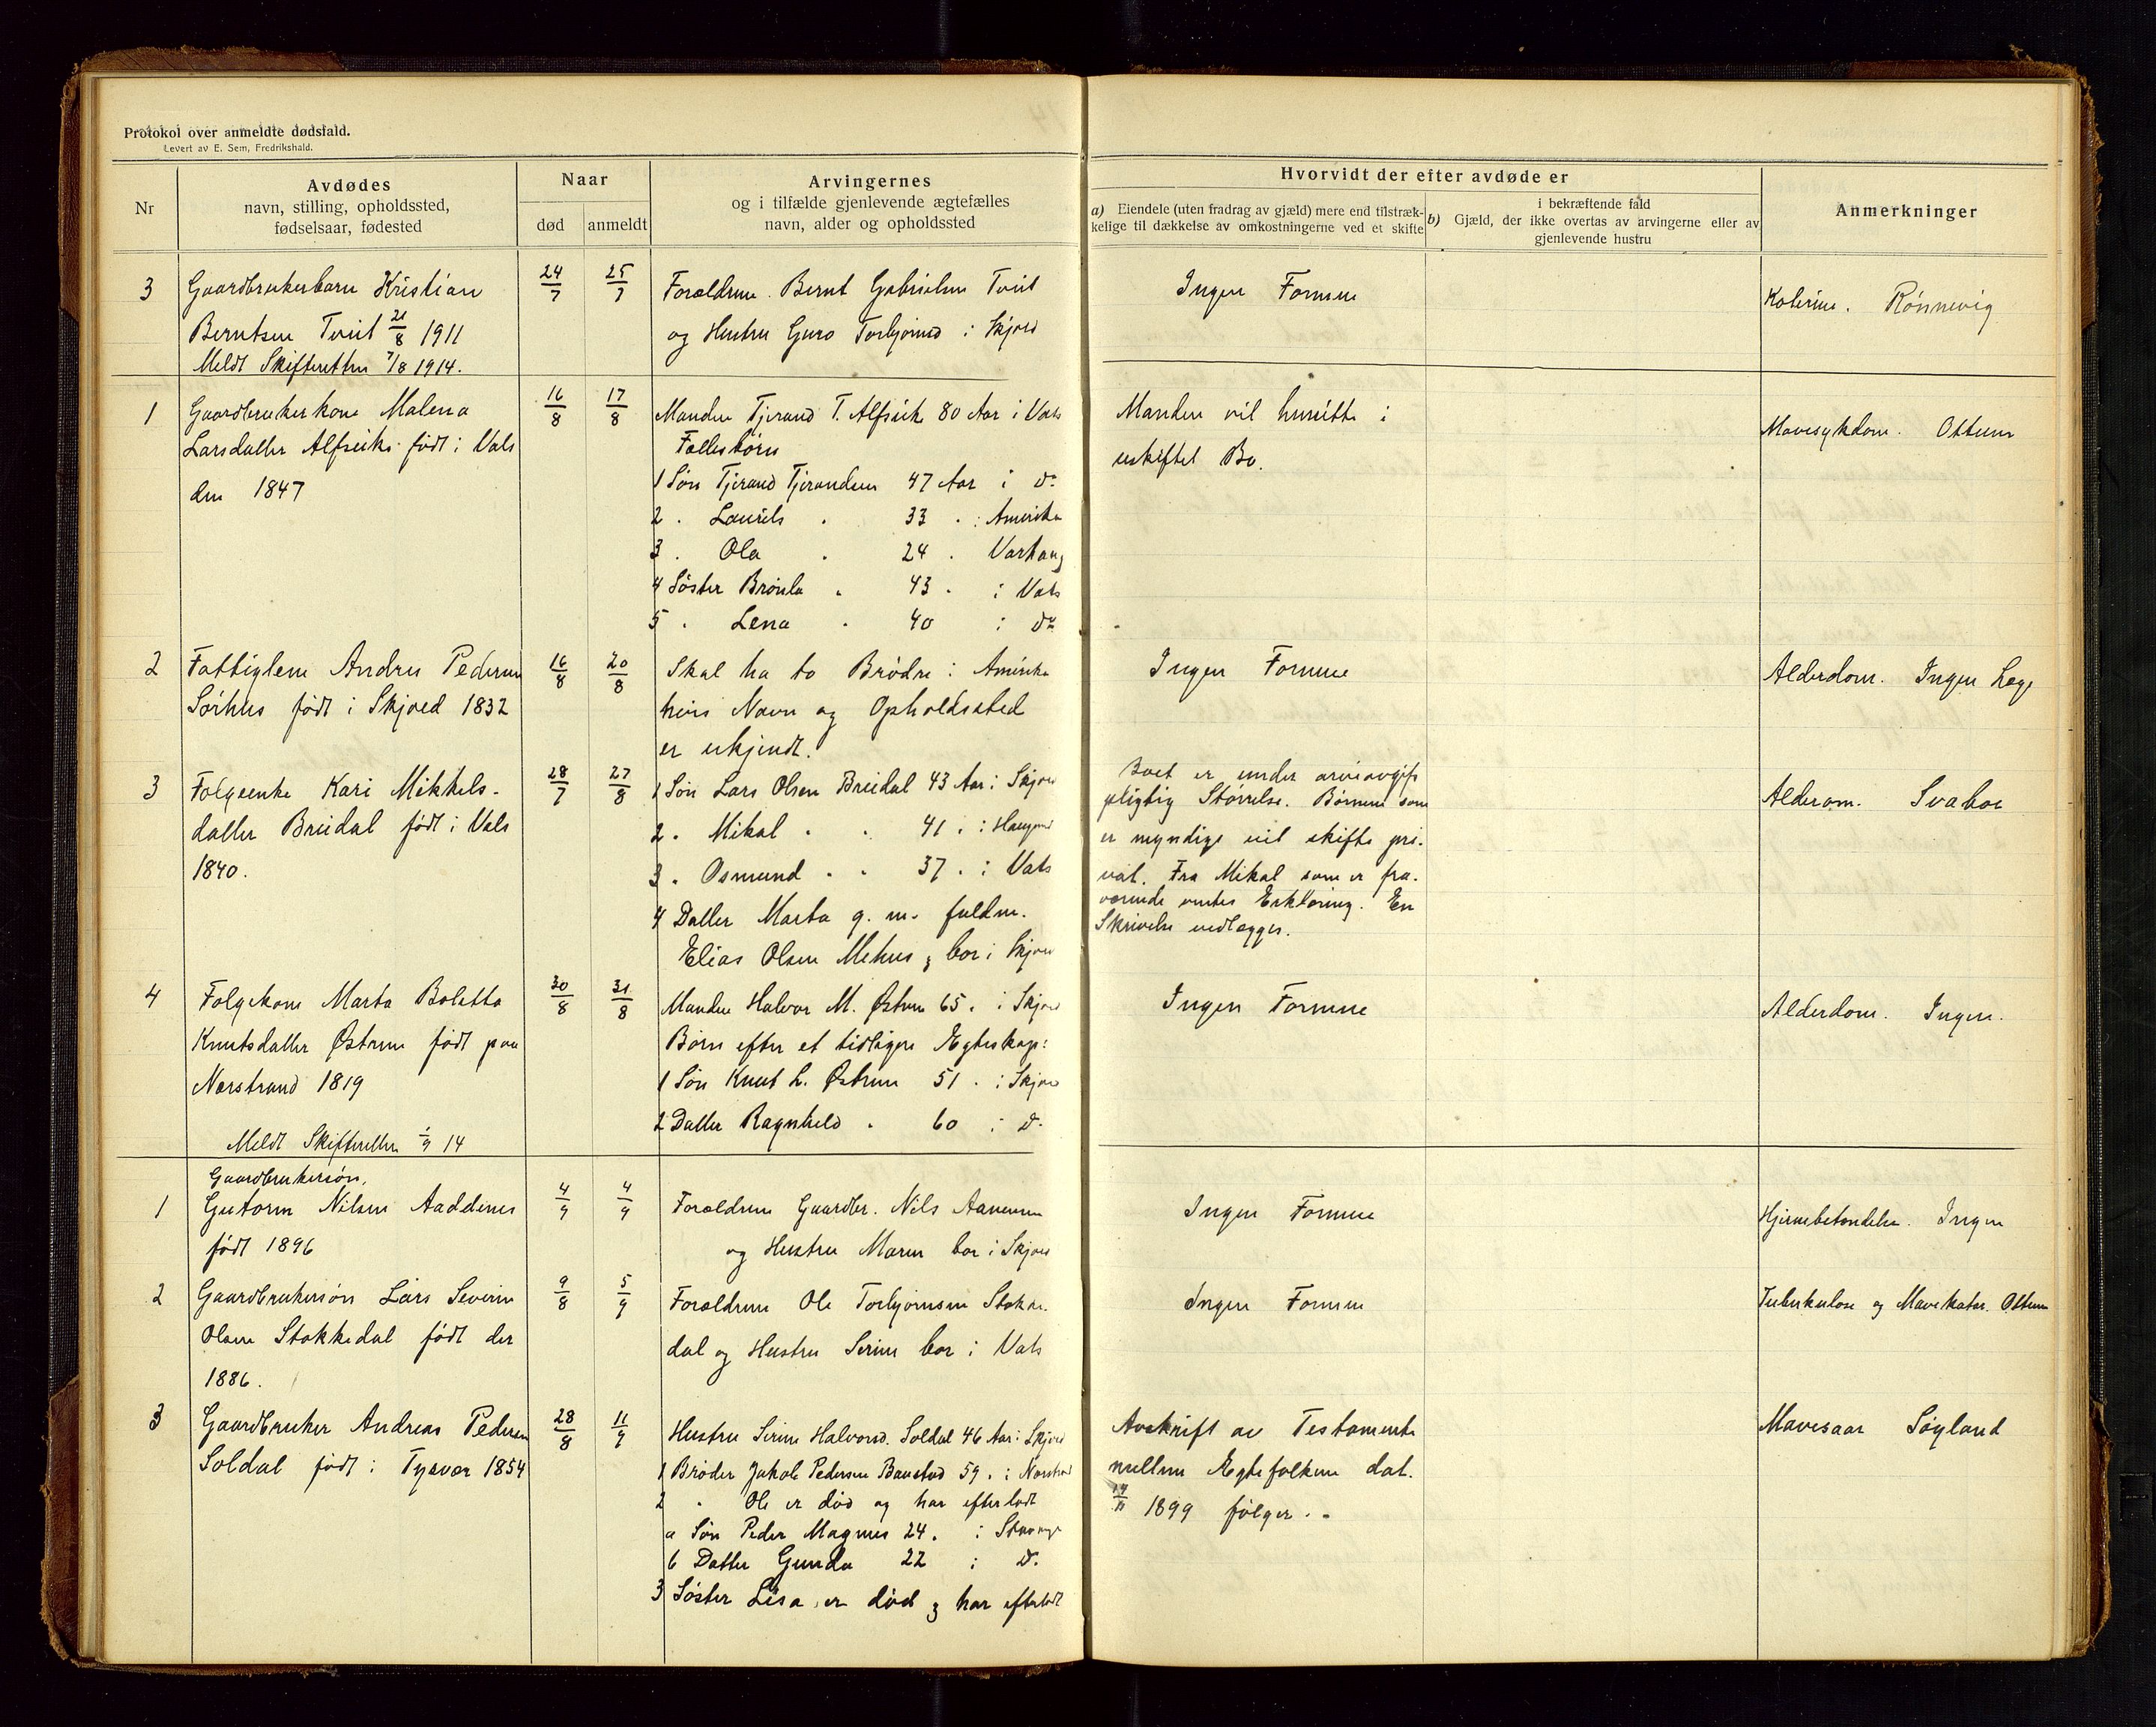 Protokol over anmeldte dødsfald.
Levert av E. Sem, Fredrikshald.
Nr
Avdødes
navn, stilling, opholdssted,
fødselsaar, fødested
Naar
død
anmeldt
Arvingernes
og i tilfælde gjenlevende ægtefælles
navn, alder og opholdssted
Hvorvidt der efter avdøde er
a) Eiendele (uten fradrag av gjæld) mere end tilstræk-
kelige til dækkelse av omkostningerne ved et skifte
i bekræftende fald
b) Gjæld, der ikke overtas av arvingerne eller av
gjenlevende hustru
Anmerkninger
3 Gaardbrukerbarn Kristian
Berntsen Tveit 21/8 1911
Meldt Skifteretten 7/8 1914.
24/7 25/7
Forældrene Bernt Gabrielsen Tveit
og Hustru Guro Torbjørnsd i Skjold
Ingen Formue
Rönnevig
1 Gaardbrukerkone Malena
Larsdatter Alfseike født i Vats
den 1847
16/8 17/8
Manden Tjerand T. Alfseike 80 Aar i Vats
Fællesbørn
1 Søn Tjerand Tjerandsen 47 Aar i do
2 . Laurits . 33 . i Amerika
3 . Ola . 24 . Varhaug
4 Søster Brönla . 43 . i Vats
5 . Lena . 40 i do
Manden vil hensitte i
uskiftet Bo.
Mavesykdom. Ottesen
2 Fattiglem Andreas Pedersen
Sørhus født i Skjold 1832
16/8 20/8
Skal ha to Brødre i Amerika
hvis Navn og Opholdssted
er ukjendt.
Ingen Formue
Alderdom. Ingen Læge
3 Folgeenke Kari Mikkels-
datter Breidal født i Vats
1840.
28/7 27/8
1 Søn Lars Olsen Breidal 43 Aar i Skjold
2 . Mikal . . 41 . i Haugesund
3 . Osmund . . 37 . i Vats
4 Datter Marta g. m. fuldm.
Elias Olsen Mehus, bor i Skjold
Boet er under arveavgifts
pligtig Størrelse. Børnene som
er myndige vil skifte pri-
vat. Fra Mikal som er fra-
værende ventes Erklæring. En
Skrivelse vedlægges.
Alderom. Svaboe
4 Folgekone Marta Boletta
Knutsdatter Østrem født paa
Nerstrand 1819
Meldt Skifteretten 1/9 14
30/8 31/8
Manden Halvor M. Østrem 65 . i Skjold
Børn efter et tidligere Egteskap:
1 Søn Knut L. Østrem 51 . i Skjold
2 Datter Ragnhild . 60 i do
Ingen Formue
Alderdom. Ingen.
Gaardbrukersøn,
1 Gutorm Nilsen Aaddines
født 1896
4/9 4/9
Forældrene Gaardbr. Nils
og Hustru Maren bor i Skjold
Ingen Formue
Hjernebetændelse. Ingen
2 Gaardbrukersøn Lars Severin
Olsen Stokkedal født der
1886.
9/8 5/9
Forældrene Ole Torbjørnsen Stokke-
dal og Hustru Serine bor i Vats
Ingen Formue
Tuberkulose og Mavekatar. Ottesen
3 Gaardbruker Andreas Pedersen
Soldal født i Tysvær 1854
28/8 11/9
Hustru Serine Halvorsd. Soldal 46 Aar i Skjold
1 Broder Jakob Pedersen Baustad 59 . i Nerstrand
2 " Ole er død og har efterladt
a Søn Peder Magnus 24 . i Stavanger
b Datter Gunda 22 i do
3 Søster Lisa er død og har efterladt
Avskrift av Testamente
mellem Egtefolkene dat.
1899 følger.
Mavesaar Søyland